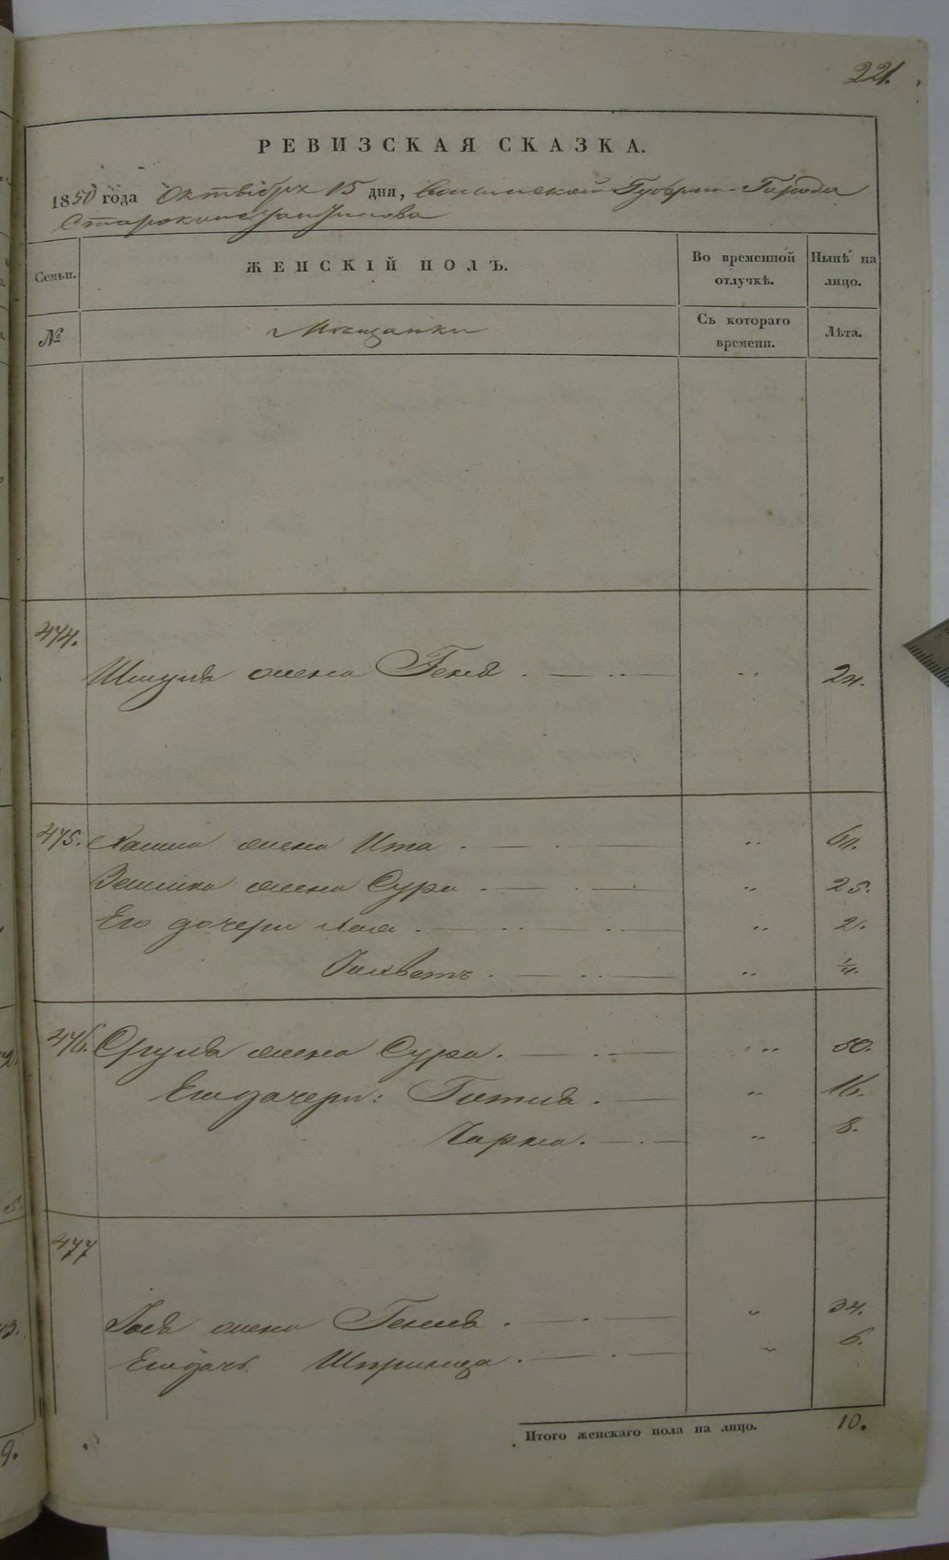 221.
РЕВИЗСКАЯ СКАЗКА.
1850 года Октября 15 дня, Волынской Губернии Города
Староконстантинова
Семьи. ЖЕНСКІЙ ПОЛЪ. Во временной отлучкѣ. Нынѣ на лицо.
№ Мещанки Съ котораго времени. Лѣта.
474.
Шмуля жена Геня 24.
475. жена Ита 60.
жена Сура 25.
Его дочери Хая 2.
¼.
476. Сруля жена Сура. 50.
Его дочери: Гитля 16.
Чарна. 8.
477
жена Генля 34.
Его дочь Шпринца 6.
Итого женскаго пола на лицо. 10.